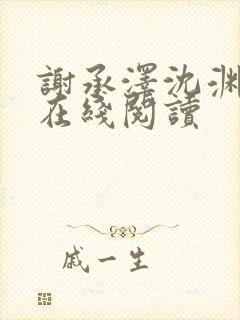 謝承澤沈渊
在綫閱讀
戚一生